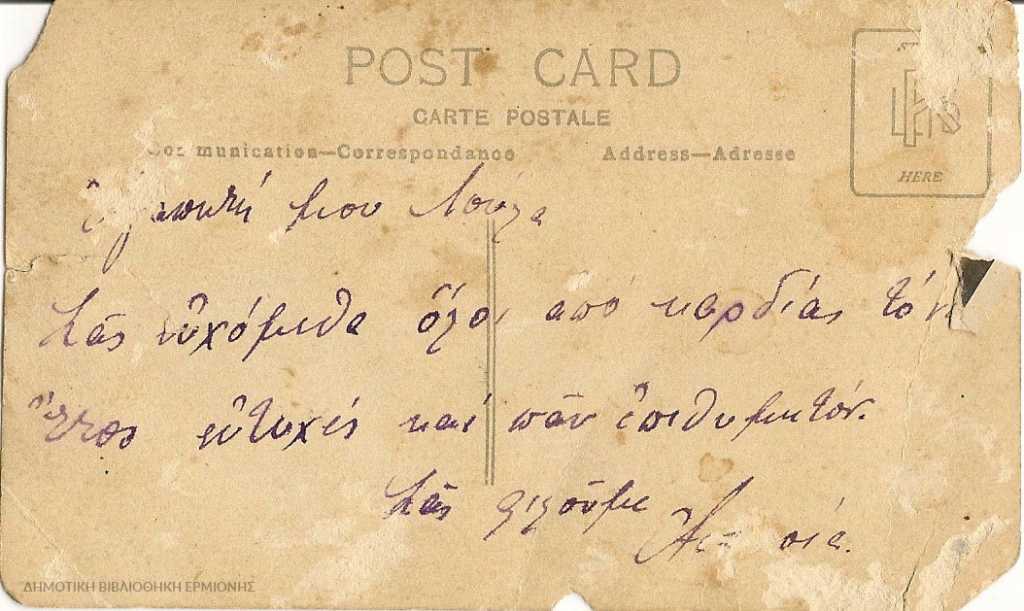 POST CARD
CARTE POSTALE
Communication—Correspondance
Address—Adresse
HERE
μου Λούλα
Σᾶς εὐχόμεθα ὅλοι ἀπό καρδίας τό
ἔτος εὐτυχές καί πᾶν ἐπιθυμητόν.
Σᾶς φιλοῦμε
ΔΗΜΟΤΙΚΗ ΒΙΒΛΙΟΘΗΚΗ ΕΡΜΙΟΝΗΣ